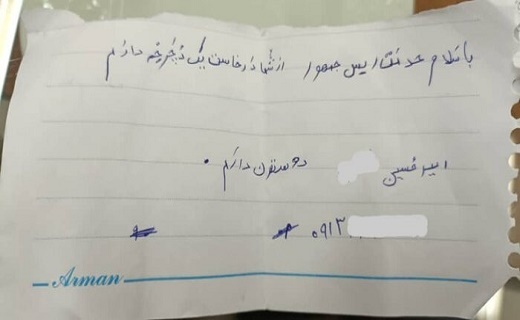 باسلام خدمت رییس جمهور از شما درخاست یک دوچرخه دارم
امیر حسین دوستون دارم .
۰۹۱۳
Arman